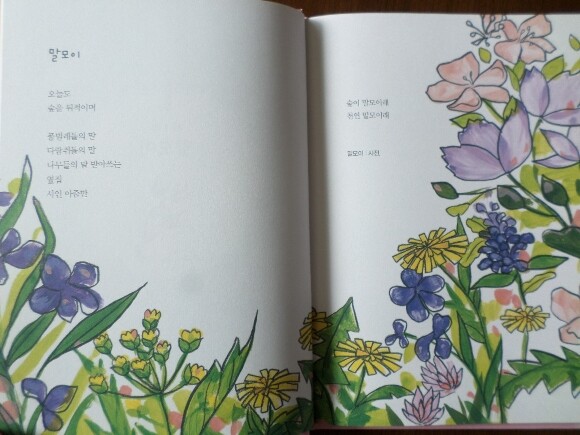 말모이
오늘도
숲을 뒤적이며
풀벌레들의 말
다람쥐들의 말
나무들의 말 받아쓰는
옆집
시인 아줌만
숲이 말모이래
자연 말모이래
말모이 : 사전.